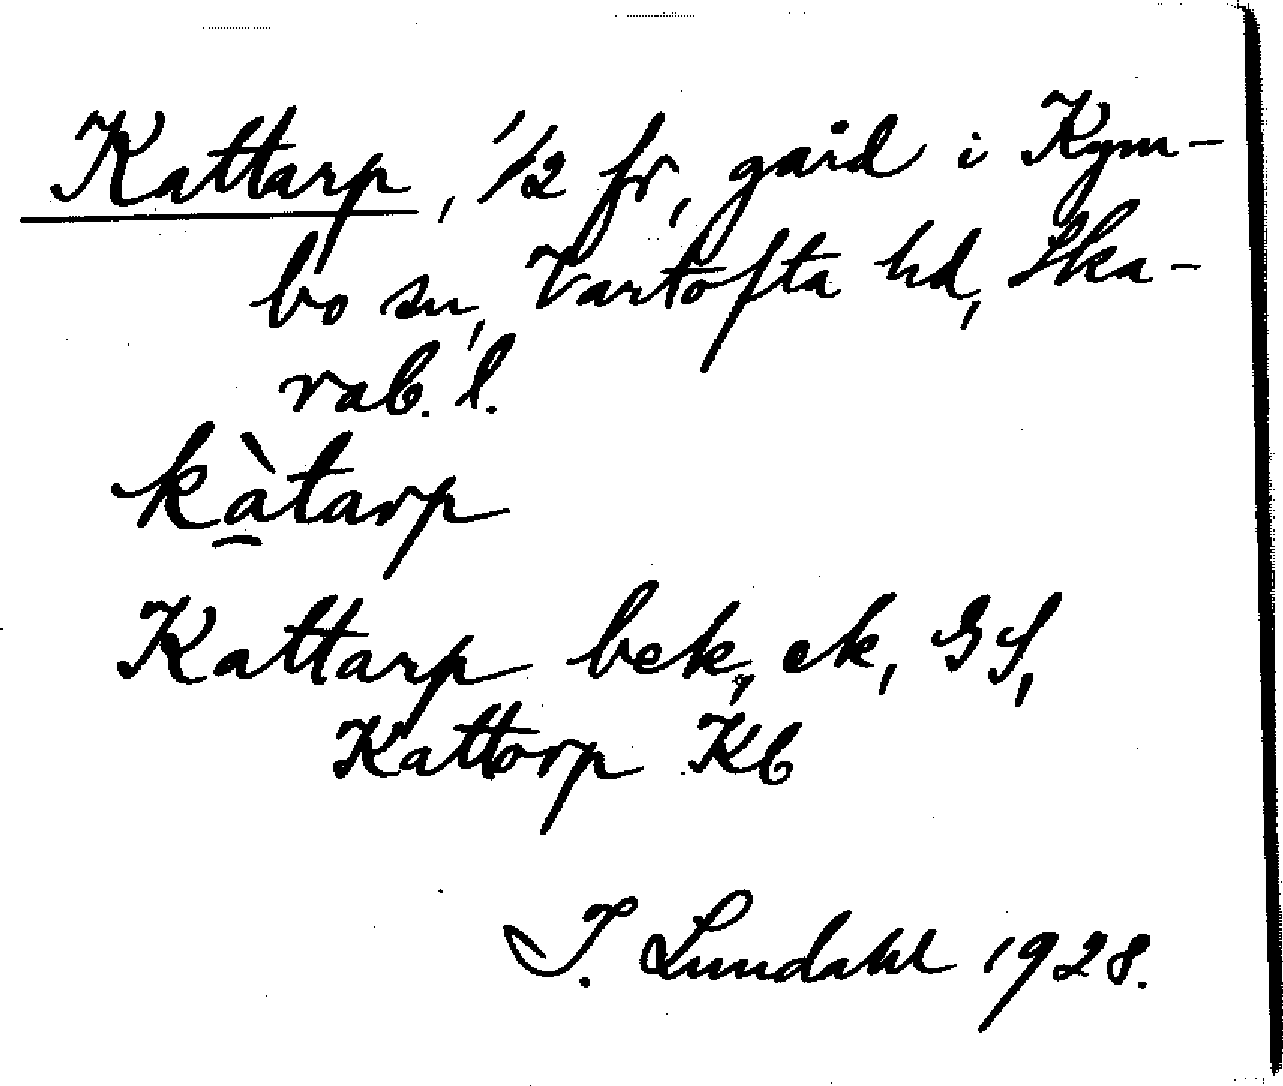 Kattarp, 1/2 fr, gård i Kym-
bo sn, Vartofta hd, Ska-
rab. l.
kà̠tarp
Kattarp bek, ek, GS,
Kattorp Kb
I. Lundahl 1928.